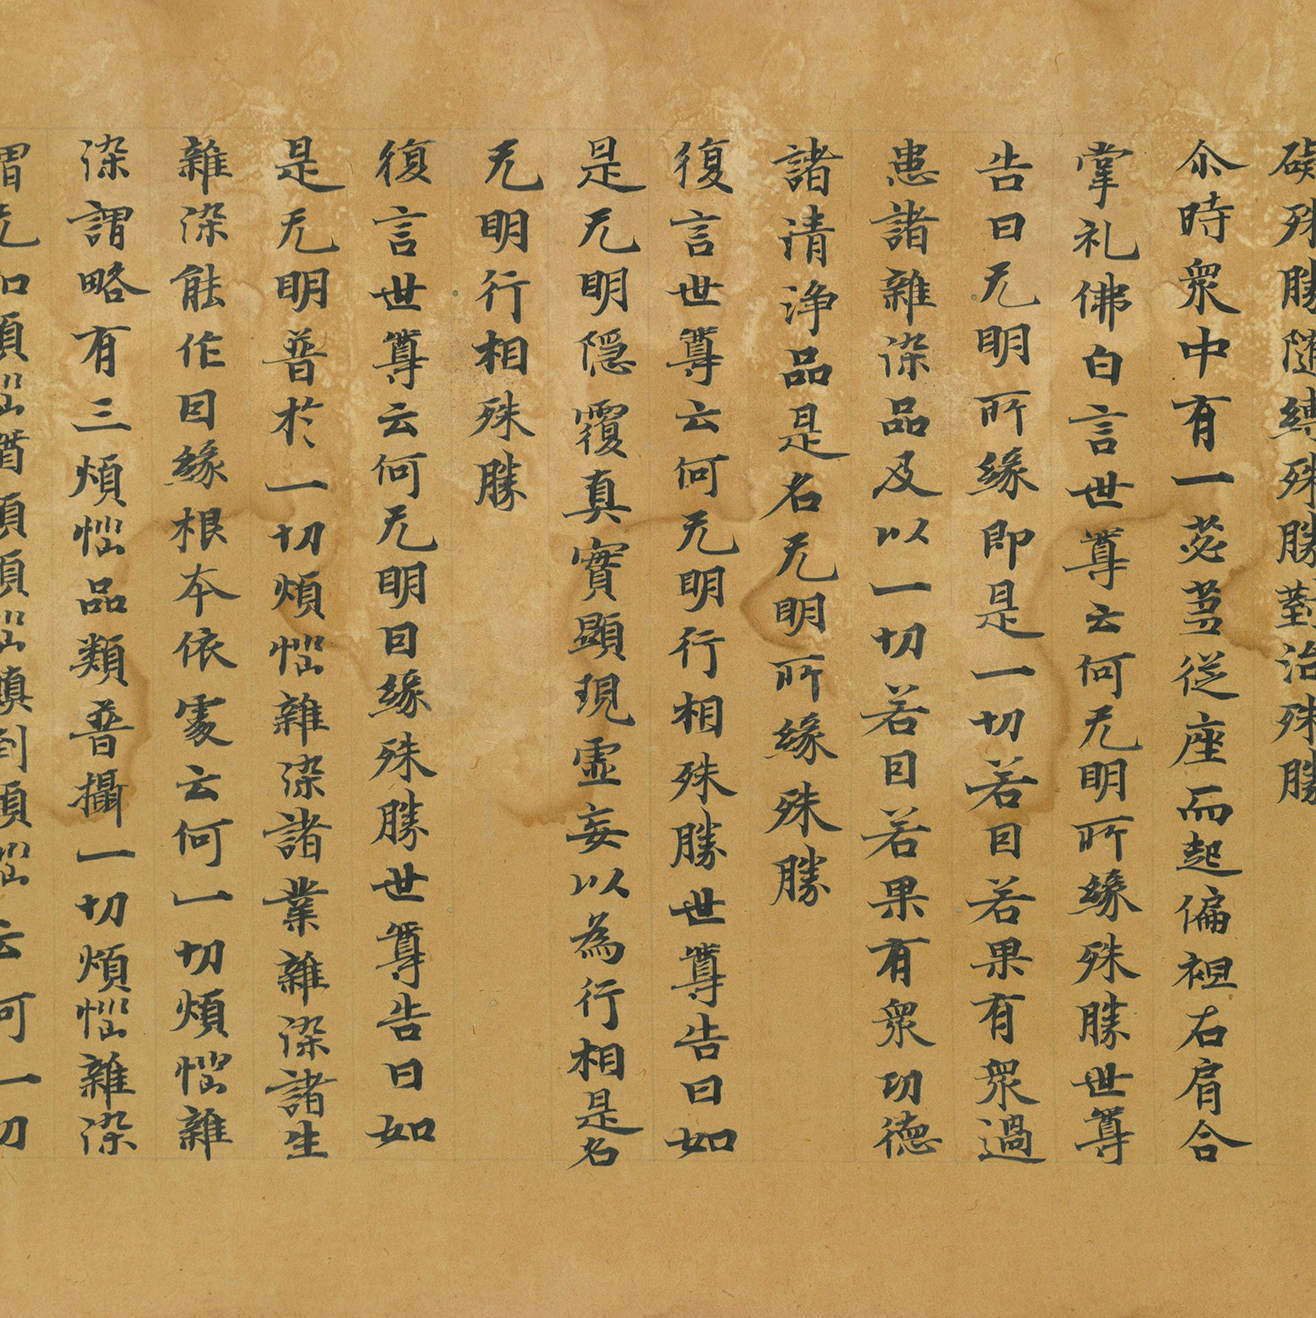 礙殊勝隨縛殊勝對治殊勝
尒時衆中有一苾蒭從座而起偏袒右肩合
掌礼佛白言世尊云何无明所緣殊勝世尊
告曰无明所緣即是一切若因若果有衆過
患諸雜染品及以一切若因若果有衆功德
諸清淨品是名无明所緣殊勝
復言世尊云何无明行相殊勝世尊告曰如
是无明隱覆真實顯現虛妄以為行相是名
无明行相殊勝
復言世尊云何无明因緣殊勝世尊告曰如
是无明普於一切煩惱雜染諸業雜染諸生
雜染能作因緣根本依處云何一切煩惱雜
染謂略有三煩惱品類普攝一切煩惱雜染
謂无知煩惱猶預煩惱顛到煩惱云何一切